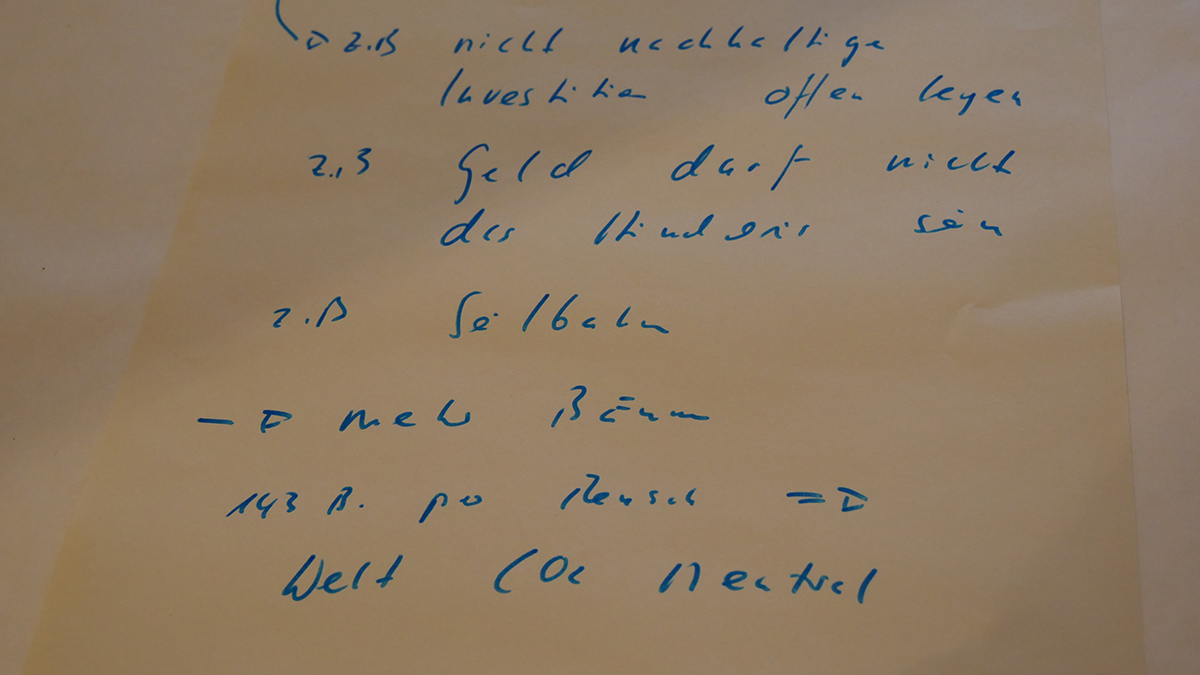 → z.B nicht nachhaltige
Investition offen legen
z.B Geld darf nicht
das Hindernis sein
z.B Seilbahn
→ mehr Bäume
143 B. pro Mensch =>
Welt CO2 Neutral